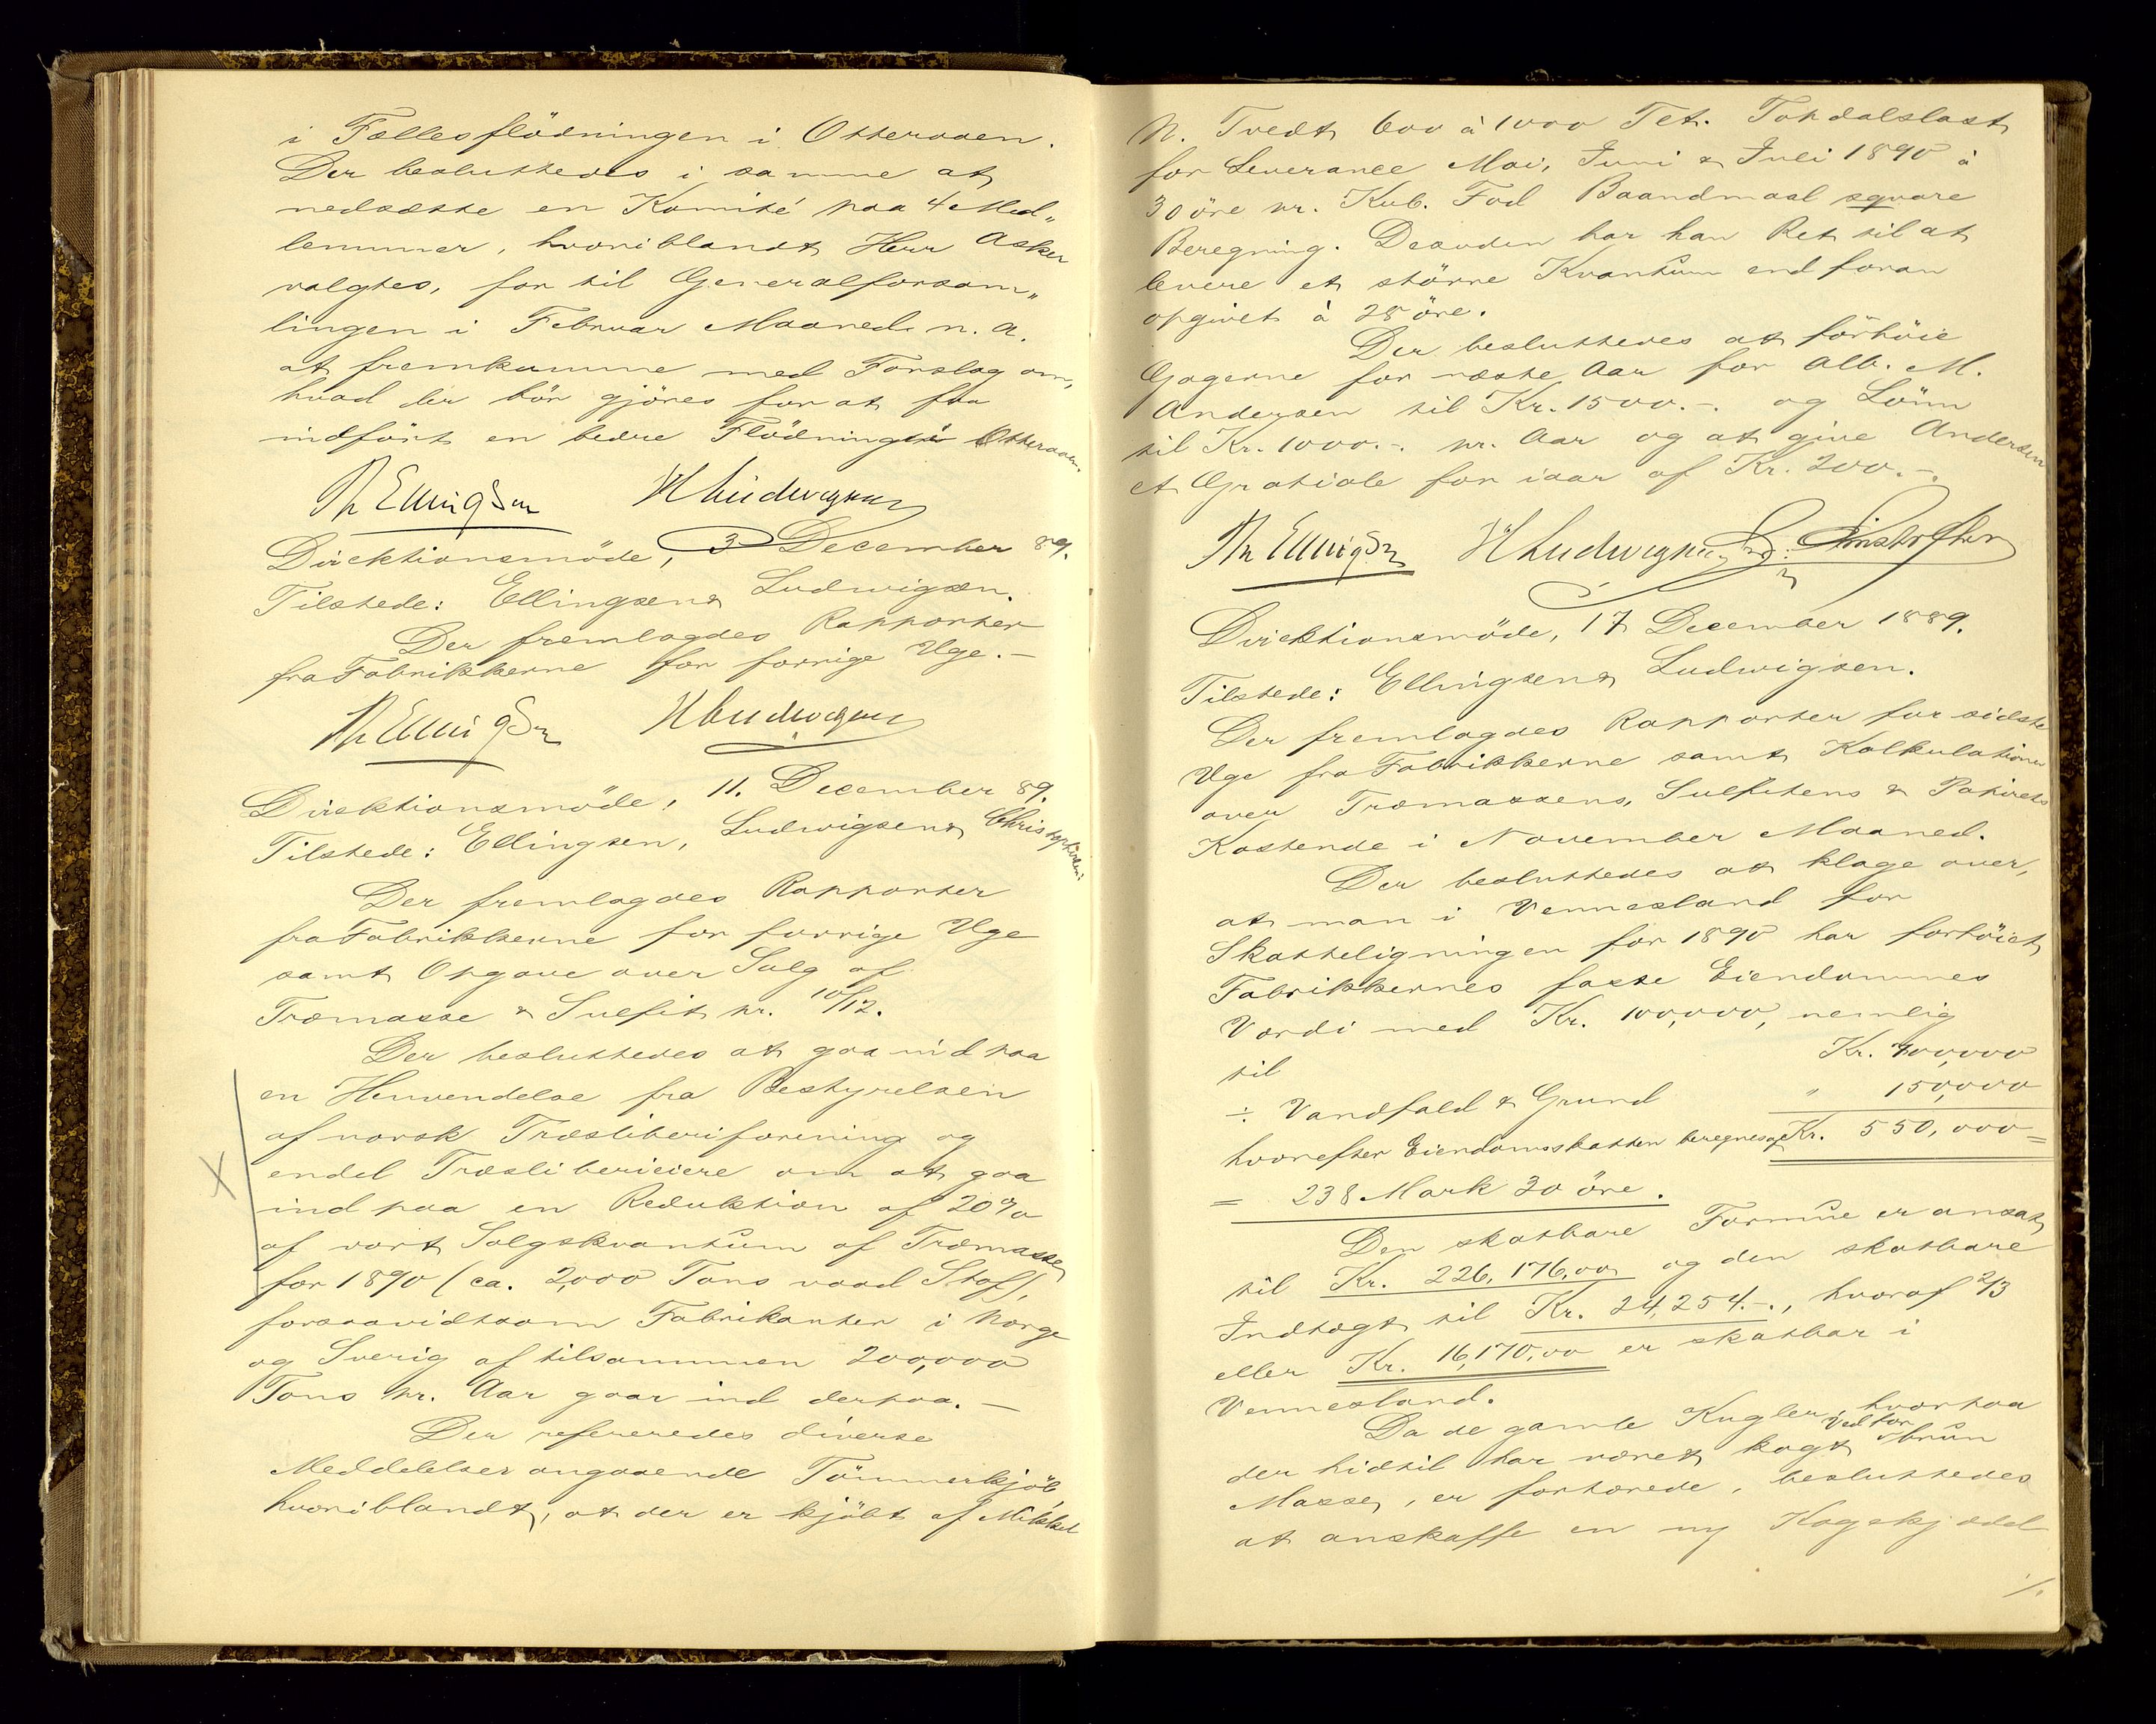 i Fællesflödningen i Otteraaen.
Der besluttedes i samme at
nedsætte en Komité paa 4 Med„
lemmer, hvoriblandt Herr Asker
valgtes, for til Generalforsam„
lingen i Februar Maaned n. A.
at fremkomme med Forslag om,
hvad der bör gjöres for at faa
indfört en bedre Flödning i Otteraaen.
Th Ellingsen HLudwigsen
Direktionsmöde, 3 December 89.
Tilstede: Ellingsen & Ludwigsen.
Der fremlagdes Rapporter
fra Fabrikkerne for forrige Uge.–
Th Ellingsen HLudwigsen
Direktionsmöde, 11. December 89.
Tilstede: Ellingsen, Ludwigsen & Christophersen.
Der fremlagdes Rapporter
fra Fabrikkerne for forrige Uge
samt Opgave over Salg af
Træmasse & Sulfit pr. 10/12.
Der besluttedes at gaa ind paa
en Henvendelse fra Bestyrelsen
af norsk Træsliberiforening og
endel Træsliberieiere om at gaa
ind paa en Reduktion af 20%
af vort Salgskvantum af Træmasse
for 1890 (ca. 2,000 Tons vaad Stof),
forsaavidtsom Fabrikanter i Norge
og Sverig af tilsammen 200,000
Tons pr. Aar gaar ind derpaa.–
Der refereredes diverse
Meddelelser angaaende Tömmerkjöb
hvoriblandt, at der er kjöbt af Mikkel
N. Tvedt 600 à 1000 Tet. Topdalslast
for Leverance Mai, Juni & Juli 1890 à
30 öre pr. Kub. Fod Baandmaal square
Beregning. Desuden har han Ret til at
levere et större Kvantum end foran
opgivet à 28 öre.
Der besluttedes at förhöie
Gagerne for næste Aar for Alb. M.
Andersen til Kr. 1500.–. og Lönn
til Kr. 1000.–. pr. Aar og at give Andersen
et Gratiale for iaar af Kr. 200.–.
Th Ellingsen HLudwigsen
Direktionsmöde, 17 December 1889.
Tilstede: Ellingsen & Ludwigsen.
Der fremlagdes Rapporter for sidste
Uge fra Fabrikkerne samt Kalkulationer
over Træmassens, Sulfitens & Papirets
Kostende i November Maaned.
Der besluttedes at klage over,
at man i Vennesland for
Skatteligningen for 1890 har forhöiet
Fabrikkernes faste Eiendommes
Værdi med Kr. 100,000, nemlig
til Kr. 700,000
÷ Vandfald & Grund " 150,000
hvorefter Eiendomsskatten beregnes af Kr. 550,000 =
= 238 Mark 30 öre.
Den skatbare Formue er ansat
til Kr. 226,176,00 og den skatbare
Indtægt til Kr. 24,254.–., hvoraf 2/3
eller Kr. 16,170,00 er skatbar i
Vennesland.
Da de gamle Kugler, hvorpaa
der hidtil har været kogt Ved for brun
Masse, er fortærede, besluttedes
at anskaffe en ny Kogekjedel
./.